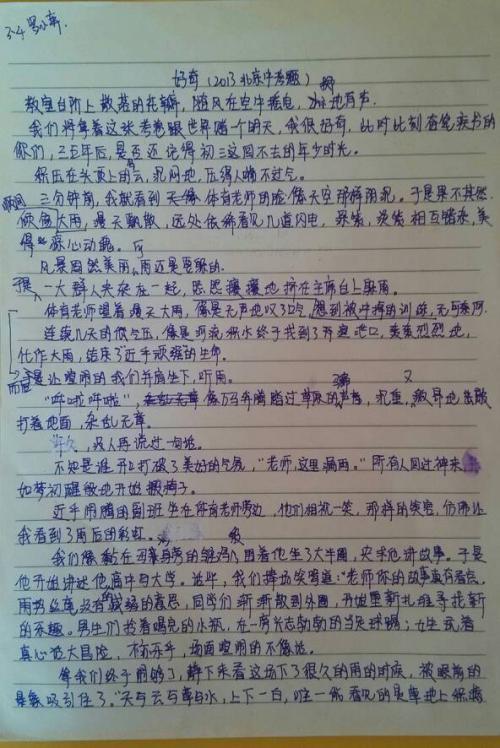 好奇（2013北京中考题）
教室台阶上散落的花瓣，随风在空中摇曳，地有声.
我们将靠着这张考卷跟世界赌个明天，我很好奇，此时此刻奋笔疾书的
你们，三五年后，是否还记得初三这回不去的年少时光。
积压在头顶上的云，沉闷地，压得人喘不过气。
三分钟前，我就看到体育老师的脸像天空那样阴沉。于是果不其然
倾盆大雨，漫天飘散，远处依稀看见几道闪电，
得惊心动魄。
风景固然美丽，雨还是要躲的.
于是一大群人夹杂在一起，熙熙攘攘地挤在主席台上躲雨。
体育老师望着漫天大雨，像是无声地叹了口气，想到被冲掉的训练，无可奈何。
连续几天的低气压，像是河流积水终于找到了开启地口，轰轰烈烈地，
化作大雨，结束了近乎顽强的生命。
于是让喧闹的我们并肩坐下，听雨。
“哗啦哗啦”，像万马奔腾踏过草原的声音，沉重，
打着地面，杂乱无章。
许久，没人再说过一句话。
不知是谁开口打破了美好的气氛，“老师，这里漏雨。”所有人回过神来，
如梦初醒般地开始搬椅子。
近乎闹腾的副班坐在体育老师旁边，他们相视一笑，那样的笑容，仿佛让
我看到了雨后的彩虹。
我们像黏在母鸡身旁的雏鸡，围着他坐了大半圈，央求他讲故事。于是
他开始讲述他高中与大学。我们捧场笑骂道：“老师你的故事真有意思。”
雨势丝毫没有减弱的意思，同学们渐渐散到外围，开始重新扎堆寻找新
的乐趣。男生们拾着喝完的水瓶，在一旁兴志勃勃的当足球踢；女生玩着
真心话大冒险，不亦乐乎，场面喧闹的不像话。
等我们终于闹够了，静下来看这场下了很久的雨的时候，被眼前的
景象吸引住了。“天与云与山与水，上下一白，唯一能看见的是草地上积攒